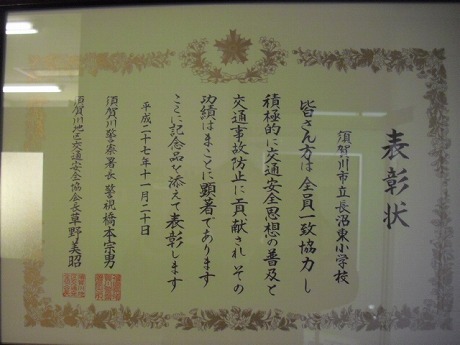 表彰状
須賀川市立長沼東小学校
皆さん方は全員一致協力し
積極的に交通安全思想の普及と
交通事故防止に貢献され その
功績はまことに顕著であります
ここに記念品を添えて表彰します
平成二十七年十一月二十日
須賀川警察署長 警視 橋本宗男
須賀川地区交通安全協会長 草野美昭